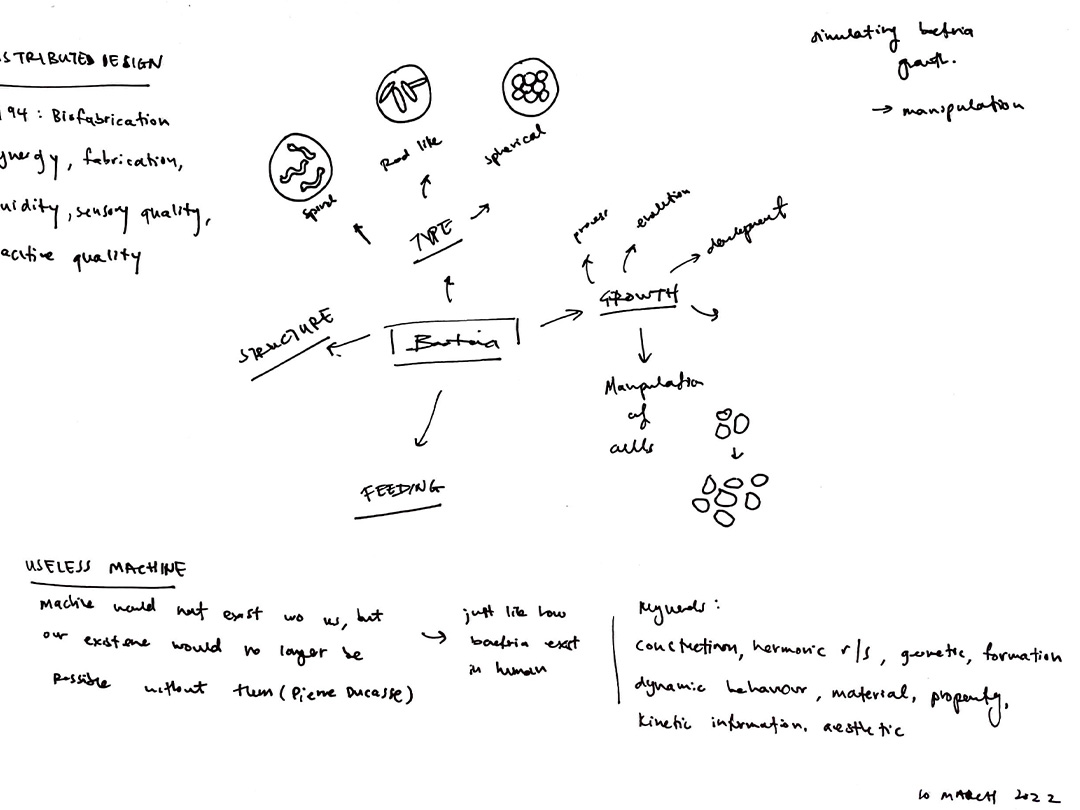 STRIBUTED DESIGN
194 : Biofabrication
ynergy, fabrication,
uidity, sensory quality,
active quality
simulating bacteria
growth.
→ manipulation
Spiral
Rod like
spherical
TYPE
process
evolution
development
GROWTH
STRUCTURE
Bacteria
Manipulation
of
cells
FEEDING
USELESS MACHINE
Machine would not exist wo us, but
our existence would no longer be
possible without them (Pierre Ducasse)
just like how
bacteria exist
in human
keywords :
construction, harmonic r/s, genetic, formation
dynamic behaviour, material, property,
kinetic information, aesthetic
10 MARCH 2022